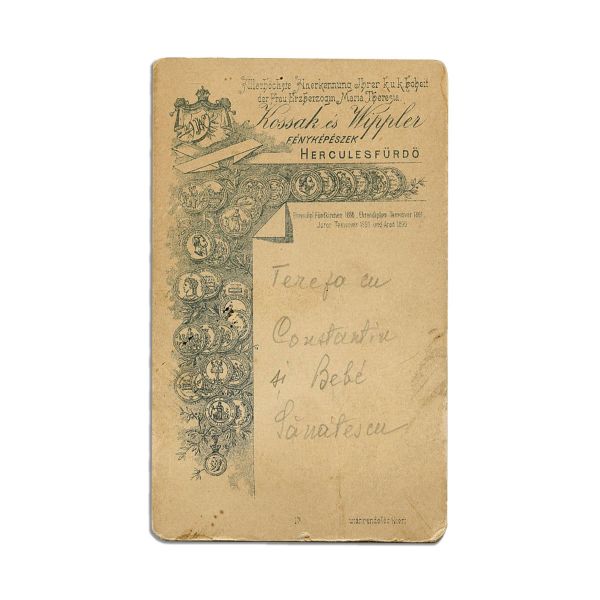 Allerhöchste Anerkennung Ihrer k.u.k. Hoheit
der Frau Erzherzogin Maria Theresia.
Kossak és Wippler
FÉNYKÉPÉSZEK
HERCULESFÜRDŐ
Fünfkirchen 1888, Ehrendiplom Temesvar 1891,
Juror Temesvar 1891 und Arad 1890
Tereza cu
Constantin
și Bebé
Sănătescu
utánrendelés kéri